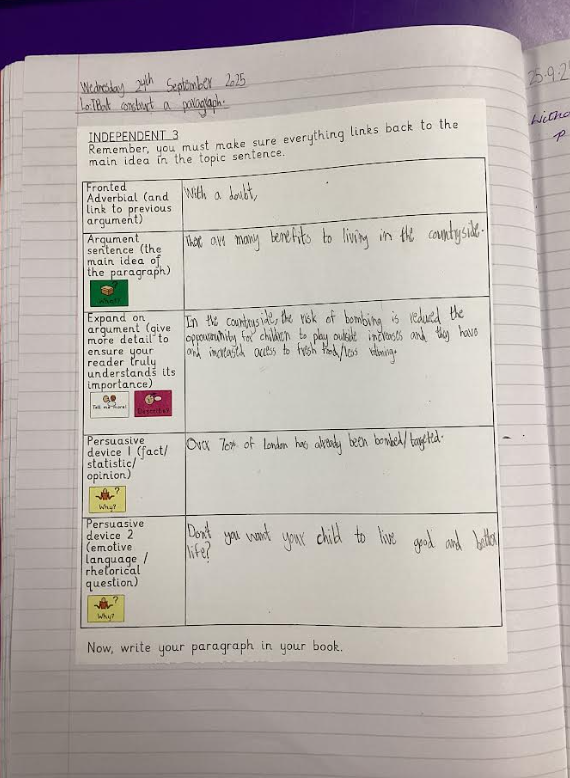 Wednesday 24th September 2025
Lo:TBat construct a paragraph.
INDEPENDENT 3
Remember, you must make sure everything links back to the
main idea in the topic sentence.
Fronted
Adverbial (and
link to previous
argument)
With a doubt,
Argument
sentence (the
main idea of
the paragraph)
What?
There are many benefits to living in the countryside.
Expand on
argument (give
more detail to
ensure your
reader truly
understands its
importance)
Tell me more!
Describe?
In the countryside, the risk of bombing is reduced the
oppournunity for children to play outside increases and they have
and increased access to fresh food/less rationing.
Persuasive
device 1 (fact/
statistic/
opinion)
Why?
Over 70% of London has already been bombed/targeted.
Persuasive
device 2
(emotive
language /
rhetorical
question)
Why?
Don't you want your child to live good and better
life?
Now, write your paragraph in your book.
25.9.2